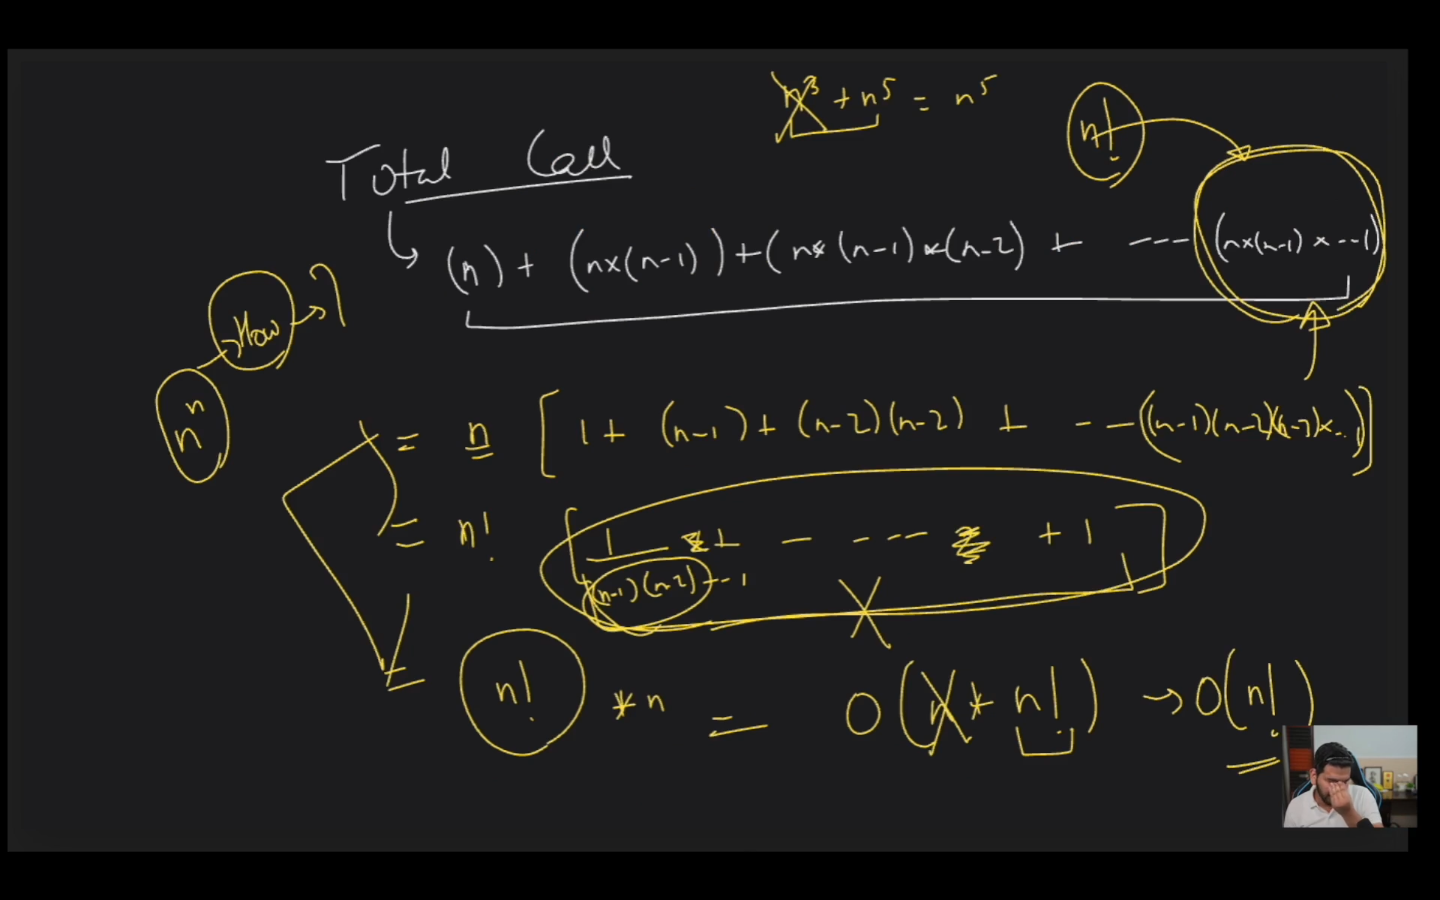 n³ + n⁵ = n⁵
n!
Total Call
(n) + (n×(n-1)) + (n* (n-1) *(n-2) + --- (n×(n-1) × --1)
How → ?
nⁿ
= n [ 1 + (n-1) + (n-2)(n-2) + -- ((n-1)(n-2)(n-3)×..1)]
= n! [ 1 + - - --- + 1 ]
(n-1)(n-2) --1
= n! * n = O(n * n!) → O(n!)